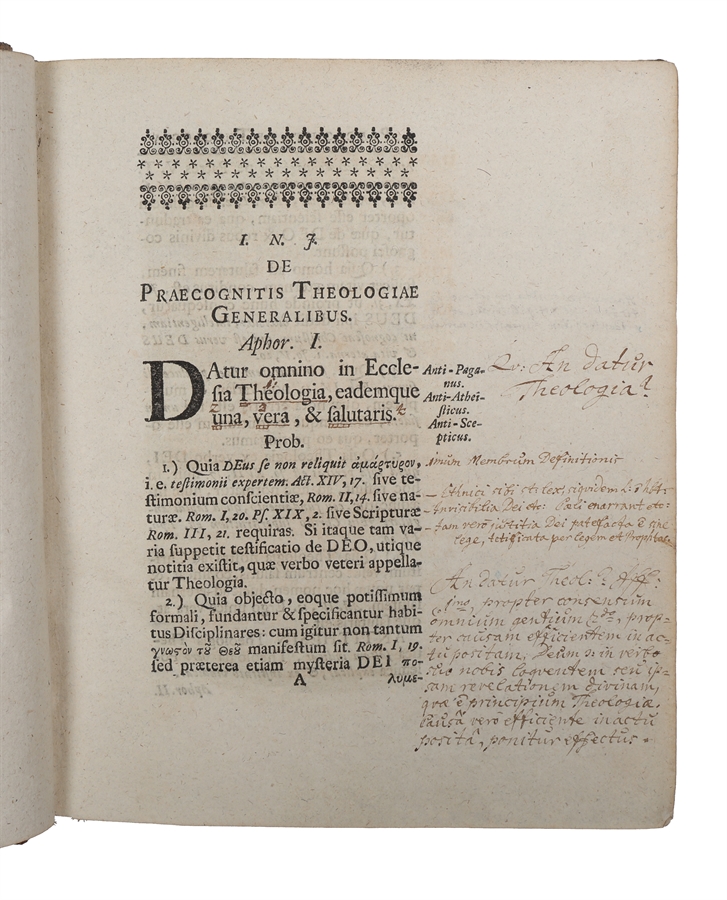 I. N. J.
DE
PRAECOGNITIS THEOLOGIAE
GENERALIBUS.
Aphor. I.
DAtur omnino in Eccle-
sia Theologia, eademque
una, vera, & salutaris.
Prob.
1.) Quia DEus se non reliquit ἀμάρτυρον,
i. e. testimonii expertem. Act. XIV, 17. sive te-
stimonium conscientiæ, Rom. II, 14. sive na-
turæ. Rom. I, 20. Ps. XIX, 2. sive Scripturæ
Rom. III, 21. requiras. Si itaque tam va-
ria suppetit testificatio de DEO, utique
notitia existit, quæ verbo veteri appella-
tur Theologia.
2.) Quia objecto, eoque potissimum
formali, fundantur & specificantur habi-
tus Disciplinares: cum igitur non tantum
γνωστὸν τοῦ Θεοῦ manifestum sit. Rom. I, 19.
sed præterea etiam mysteria DEI πο-
A λυμε-
Anti-Paga-
nus.
Anti-Athei-
sticus.
Anti-Sce-
pticus.
Qv: An datur
Theologia?
Membrum Definitionis
Ethnici sibi st lex,
invisibilia Dei etc. Cœli enarrant etc:
tam verò justitia Dei patefacta ē sine
lege, testificata per legem et Prophetas
An datur Theol: ? Aff:
propter consensum
omnium gentium prop-
ter causam efficientem in ac-
tu positam, Deum in verbo
suo nobis loqventem seu ip-
sam revelationem divinam,
quæ ē principium Theologiæ.
causâ verò efficiente in actu
positâ, ponitur effectus.